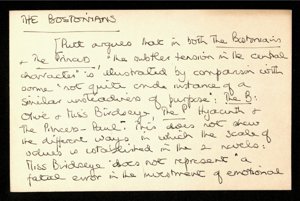 THE BOSTONIANS
[Putt argues that in both The Bostonians
+ The Princess "the subtler tension in the central
character" is illustrated by comparison with
some "not quite crude instance of a
similar unsteadiness of purpose: The B:
Olive & Miss Birdseye. The P: Hyacinth +
the Princess - Paul". This does not show
the different ways in which the scale of
values is established in the 2 novels:
Miss Birdseye "does not represent" a
fatal error in the investment of emotional